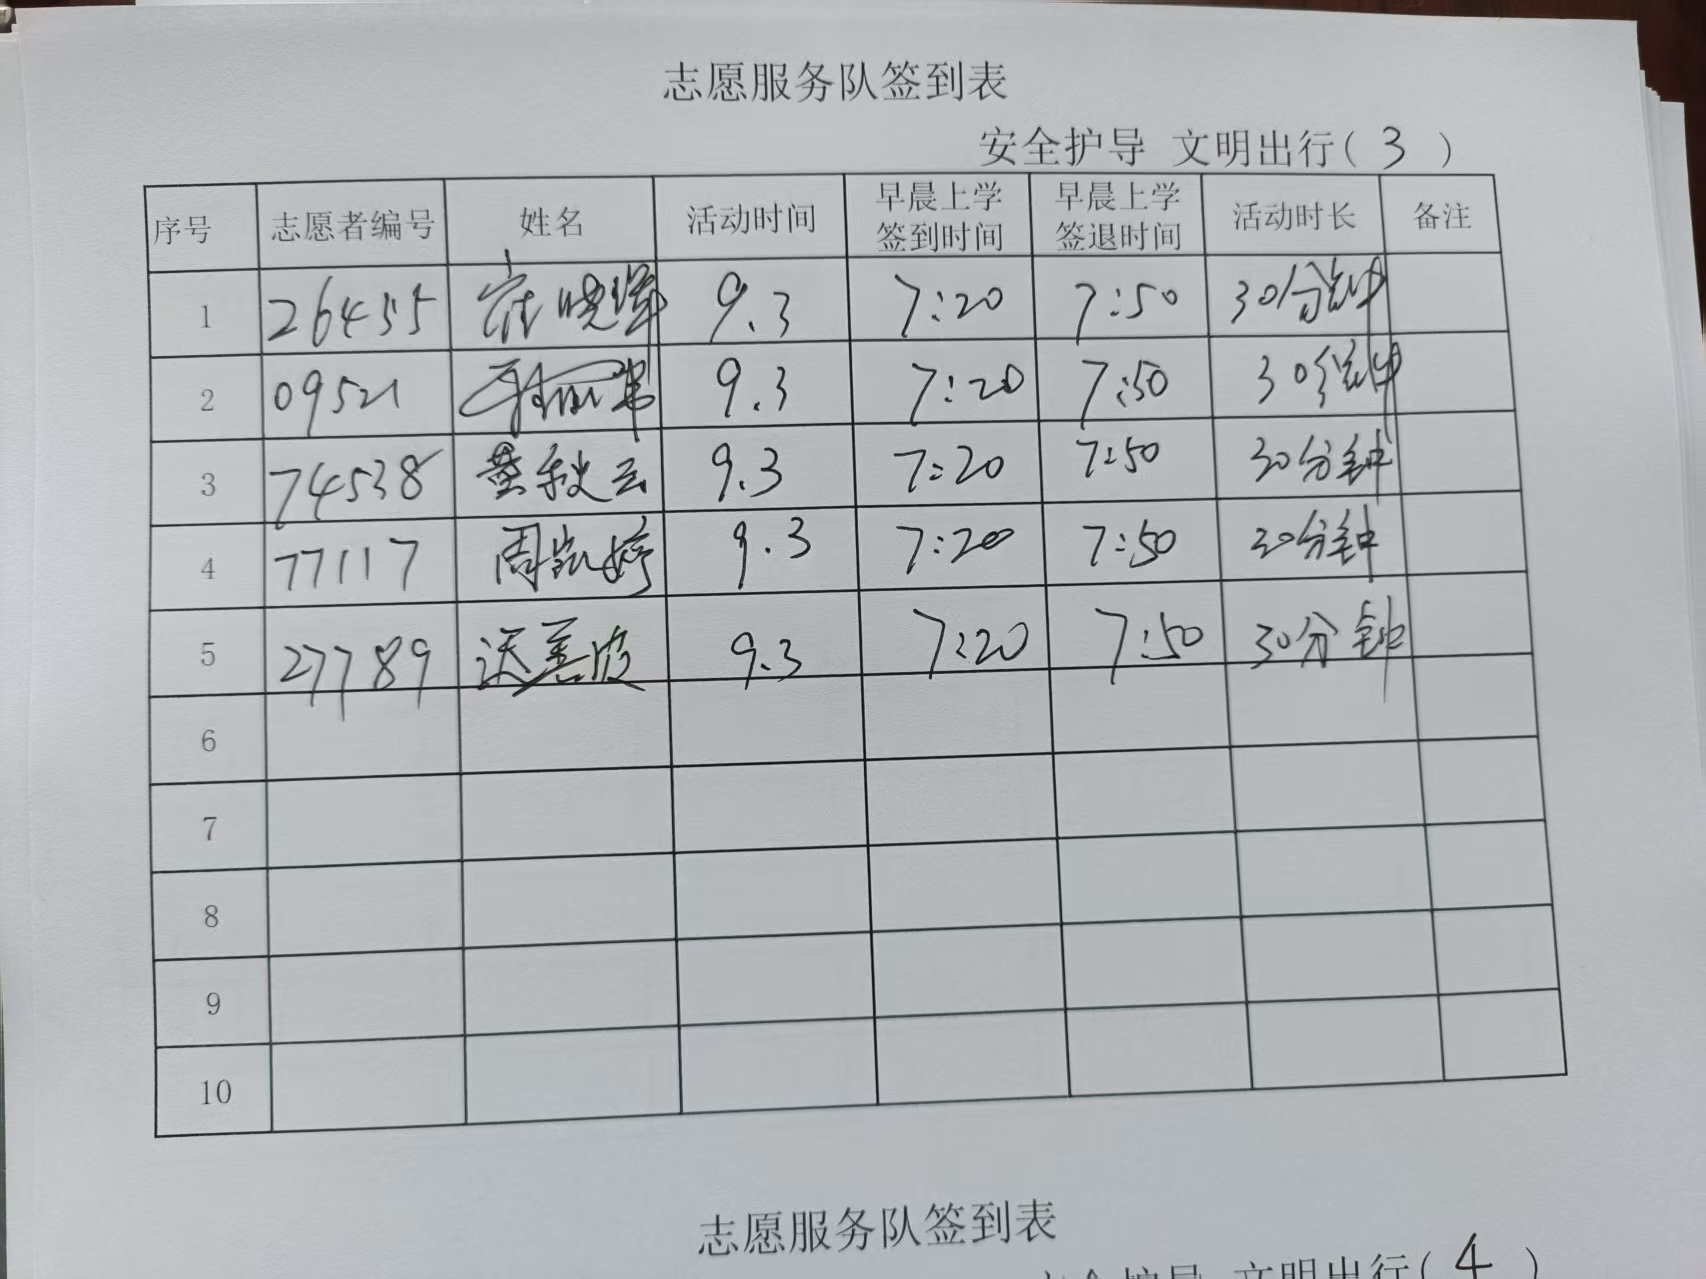 志愿服务队签到表
安全护导 文明出行( 3 )
序号 志愿者编号 姓名 活动时间 早晨上学签到时间 早晨上学签退时间 活动时长 备注
1 26455 崔晓 9.3 7:20 7:50 30分钟
2 09521 9.3 7:20 7:50 30分钟
3 74538 董秋云 9.3 7:20 7:50 30分钟
4 77117 周凯婷 9.3 7:20 7:50 30分钟
5 27789 9.3 7:20 7:50 30分钟
6
7
8
9
10
志愿服务队签到表
安全护导 文明出行( 4 )